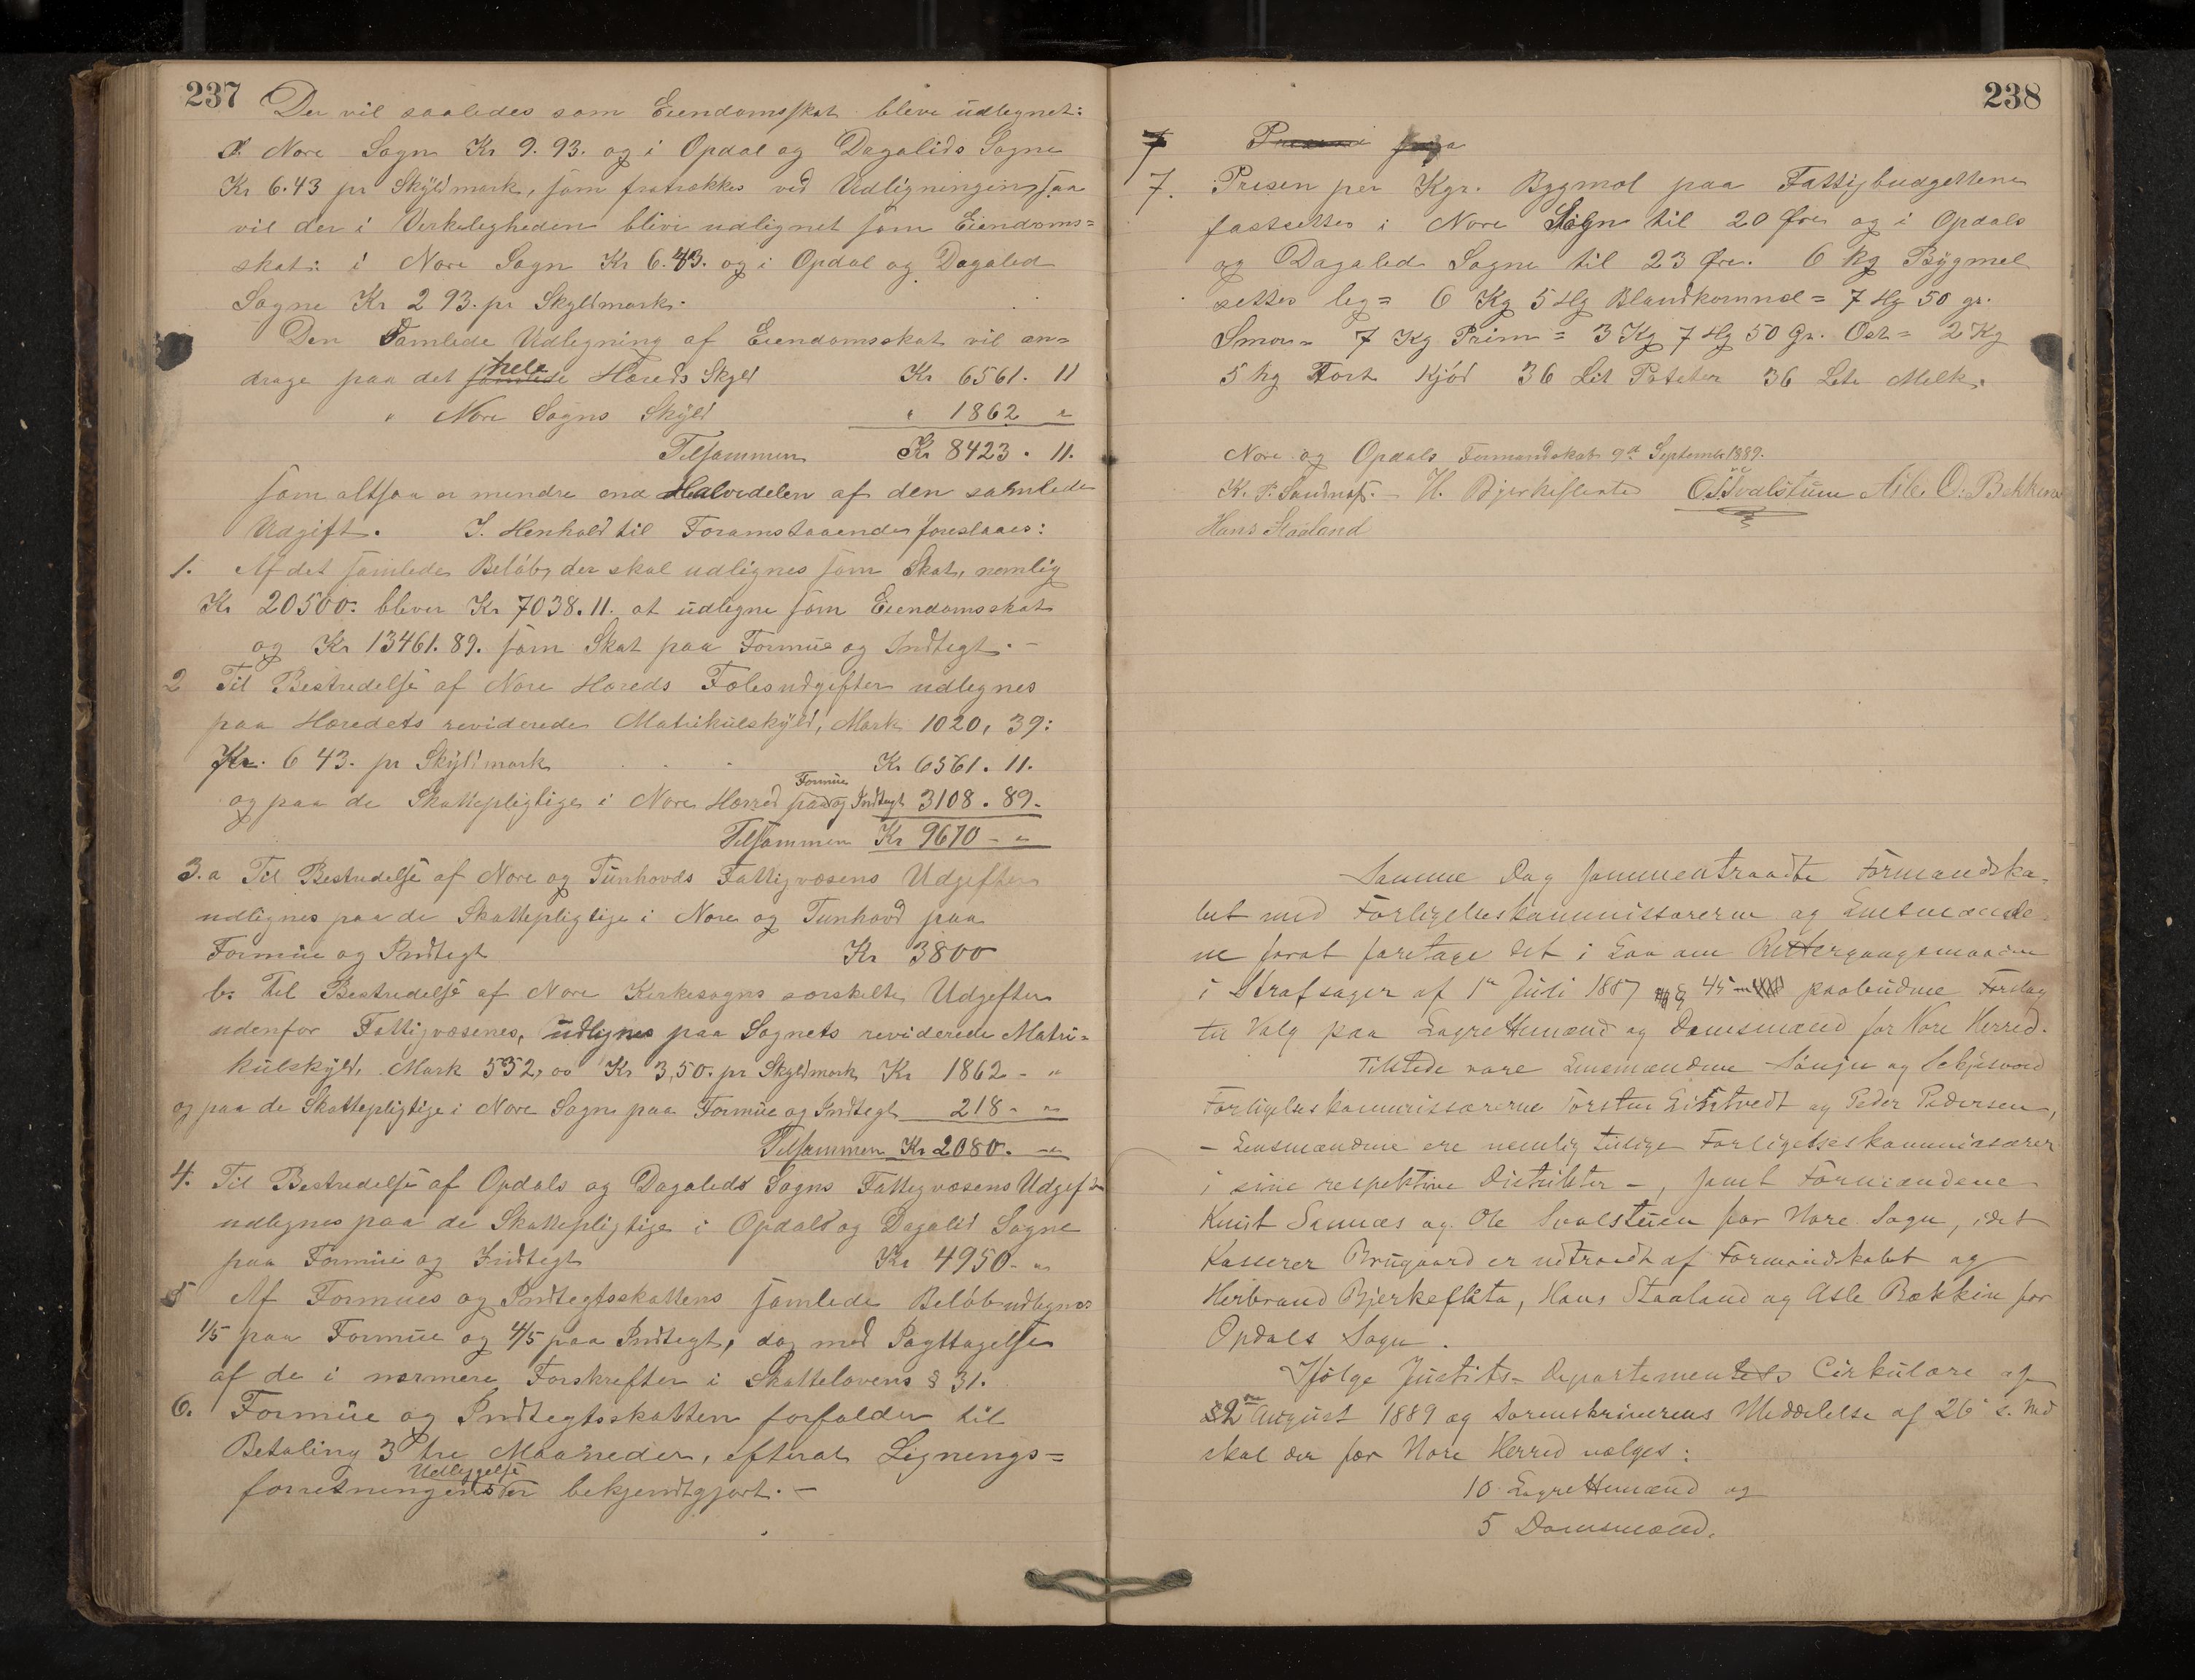 237
Der vil saaledes som Eiendomsskat blive udlignet:
I Nore Sogn Kr 9.93. og i Opdal og Dagalids Sogne
Kr 6.43 pr Skyldmark, som fratrækkes ved Udligningen, saa
vil der i Virkeligheden blive udlignet som Eiendoms=
skat: i Nore Sogn Kr 6.43. og i Opdal og Dagalid
Sogne Kr 2 93. pr Skyldmark.
Den Samlede Udligning af Eiendomsskat vil an=
drage paa det hele Hereds Skyld Kr 6561. 11
" Nore Sogns Skyld " 1862 "
Tilsammen Kr 8423. 11.
som altsaa er mindre end Halvdelen af den samlede
Udgift. I Henhold til Foranstaaende foreslaaes:
1. Af det samlede Beløb, der skal udlignes som Skat, nemlig
Kr 20500. bliver Kr 7038.11. at udligne som Eiendomsskat
og Kr 13461.89. som Skat paa Formue og Indtegt. -
2 Til Bestridelse af Nore Hereds Folesudgifter udlignes
paa Heredets reviderede Matrikulskyld, Mark 1020, 39:
Kr. 6 43. pr Skyldmark Kr 6561. 11.
og paa de Skattepligtige i Nore Herred paa Formue og Indtegt 3108. 89.
Tilsammen Kr 9670 - "
3.a Til Bestridelse af Nore og Tunhovds Fattigvæsens Udgifter
udlignes paa de Skattepligtige i Nore og Tunhovd paa
Formue og Indtegt Kr 3800
b. Til Bestridelse af Nore Kirkesogns særskilte Udgifter
udenfor Fattigvæsenes, udlignes paa Sognets reviderede Matri=
kulskyld, Mark 532,00 Kr 3,50. pr Skyldmark Kr 1862 - "
og paa de Skattepligtige i Nore Sogn paa Formue og Indtegt 218 - "
Tilsammen Kr 2080. - "
4. Til Bestridelse af Opdals og Dagalids Sogns Fattigvæsens Udgift
udlignes paa de Skattepligtige i Opdals og Dagalid Sogne
paa Formue og Indtegt Kr 4950 - "
5 Af Formues og Indtegtsskattens samlede Beløb udlignes
1/5 paa Formue og 4/5 paa Indtegt, dog med Iagttagelse
af de i nærmere Forskrefter i Skattelovens § 31.
6. Formue og Indtegtsskatten forfalder til
Betaling 3 tre Maaneder, efterat Lignings=
forretningens Udlæggelse er bekjendtgjort. -
238
7
7. Prisen per Kgr. Bygmel paa Fattigbudgettene
fastsættes i Nore Sogn til 20 Øre og i Opdals
og Dagalid Sogne til 23 Øre. 6 Kg Bygmel
sættes lig = 6 Kg 5 Hg Blandkornmel = 7 Hg 50 gr.
Smør = 7 Kg Prim = 3 Kg 7 Hg 50 Gr. Ost = 2 Kg
5 Hg Tørt Kjød 36 Lit Poteter 36 Lit Melk.
Nore og Opdals Formandskab 9de September 1889.
K. P. Sandnæs. - H. Bjerkeflaata O Svalstuen Asle O. Bækkene
Hans Staaland
Samme Dag sammentraadte Formandska-
bet med Forligelseskommissærerne og Lensmænde-
ne forat foretage det i Lov om Rettergangsmaaden
i Strafsager af 1ste Juli 1887 § 45 paabudne Forslag
til Valg paa Lagrettemænd og Domsmænd for Nore Herred.
Tilstede vare Lensmændene Sønju og
Forligelseskommissærerne Torsten Eistvedt og Peder Pedersen,
- Lensmændene ere nemlig tillige Forligelseskommissærer
i sine respektive Distrikter -, samt Formændene
Knut Sannæs og Ole Svalstuen for Nore Sogn, idet
Kasserer Brugaard er udtraadt af Formandskabet og
Herbrand Bjerkeflata, Hans Staaland og Asle Bækkin for
Opdals Sogn.
Ifølge Justits-Departementets Cirkulære af
22de August 1889 og Sorenskriverens Meddelelse af 26 s. Md
skal der for Nore Herred vælges:
10 Lagrettemænd og
5 Domsmænd.